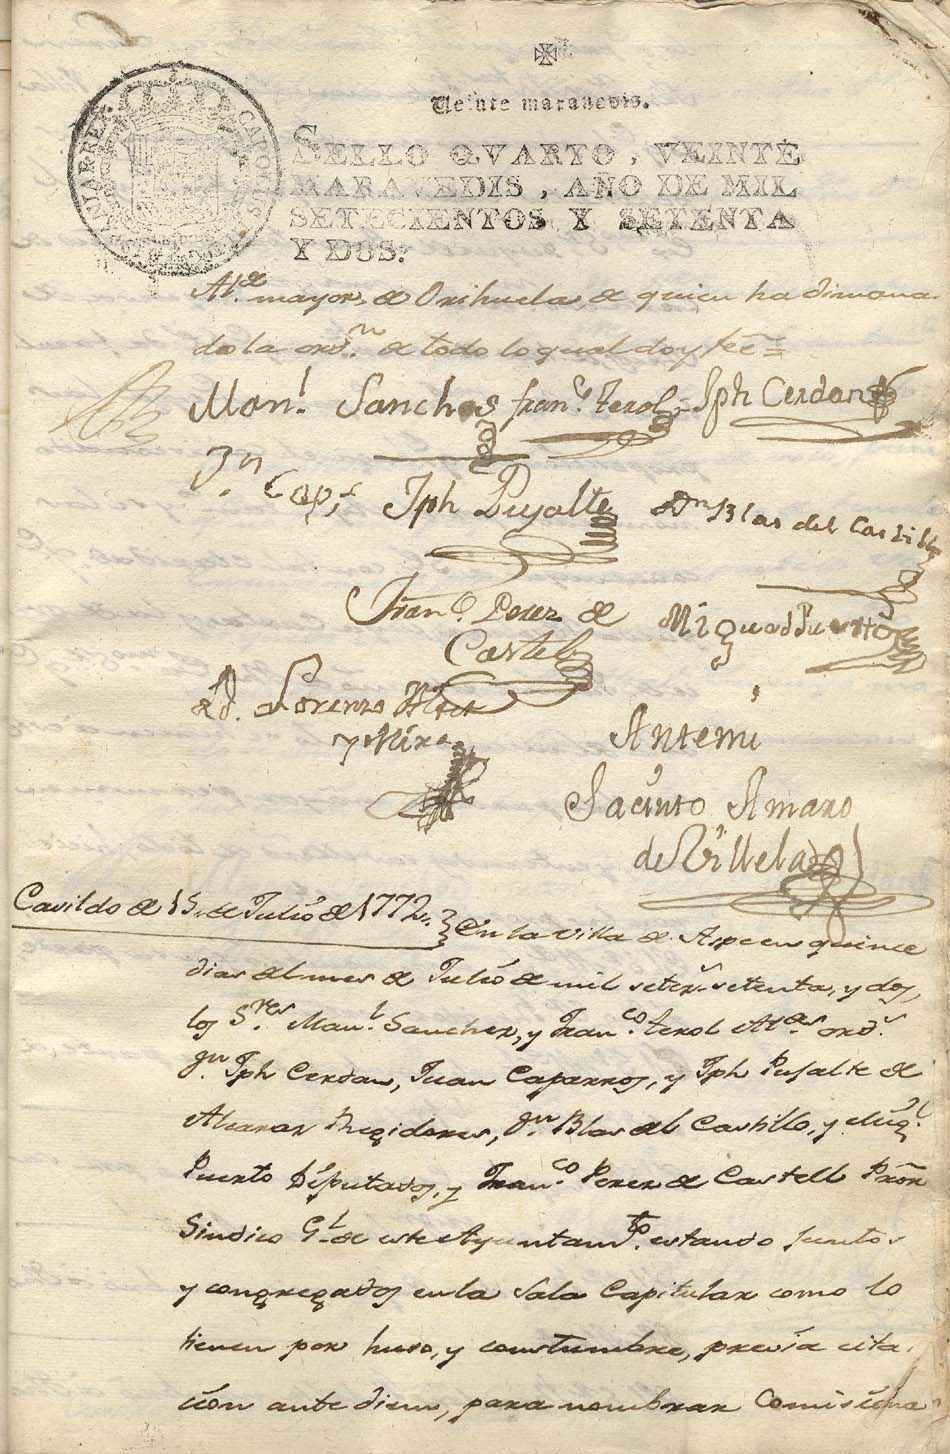 Veinte maravedis.
SELLO QVARTO, VEINTE
MARAVEDIS, AÑO DE MIL
SETECIENTOS Y SETENTA
Y DOS.
CAROLUS
Al.de mayor, de Orihuela, de quien ha dimana
do la ord.n de todo lo qual doy feé =
Man.l Sanches fran.co terol Jph Cerdan
J.n Cap.s Jph Pujalte D.n Blas del Castillo
Fran.co Perez de Miguel Puerto
Castel
D. Lorenzo
y Mira
Antemi
Jacinto Amaro
de Villela
Cavildo de 15, de Julio de 1772.
En la Villa de Aspe en quince
dias del mes de Julio de mil setez.s setenta, y dos,
los S.res Man.l Sanchez, y Fran.co terol Al.des ord.s
J.n Jph Cerdan, Juan Caparros, y Jph Pujalte de
Alcaraz Regidores, J.n Blas del Castillo, y Mig.l
Puerto Diputados, y Fran.co Perez de Castell Prõr
Sindico G.l de este Ayuntam.to estando juntos
y congregados en la Sala Capitular como lo
tienen por huso, y constumbre, previa cita
cion ante diem, para nombrar Comisiona